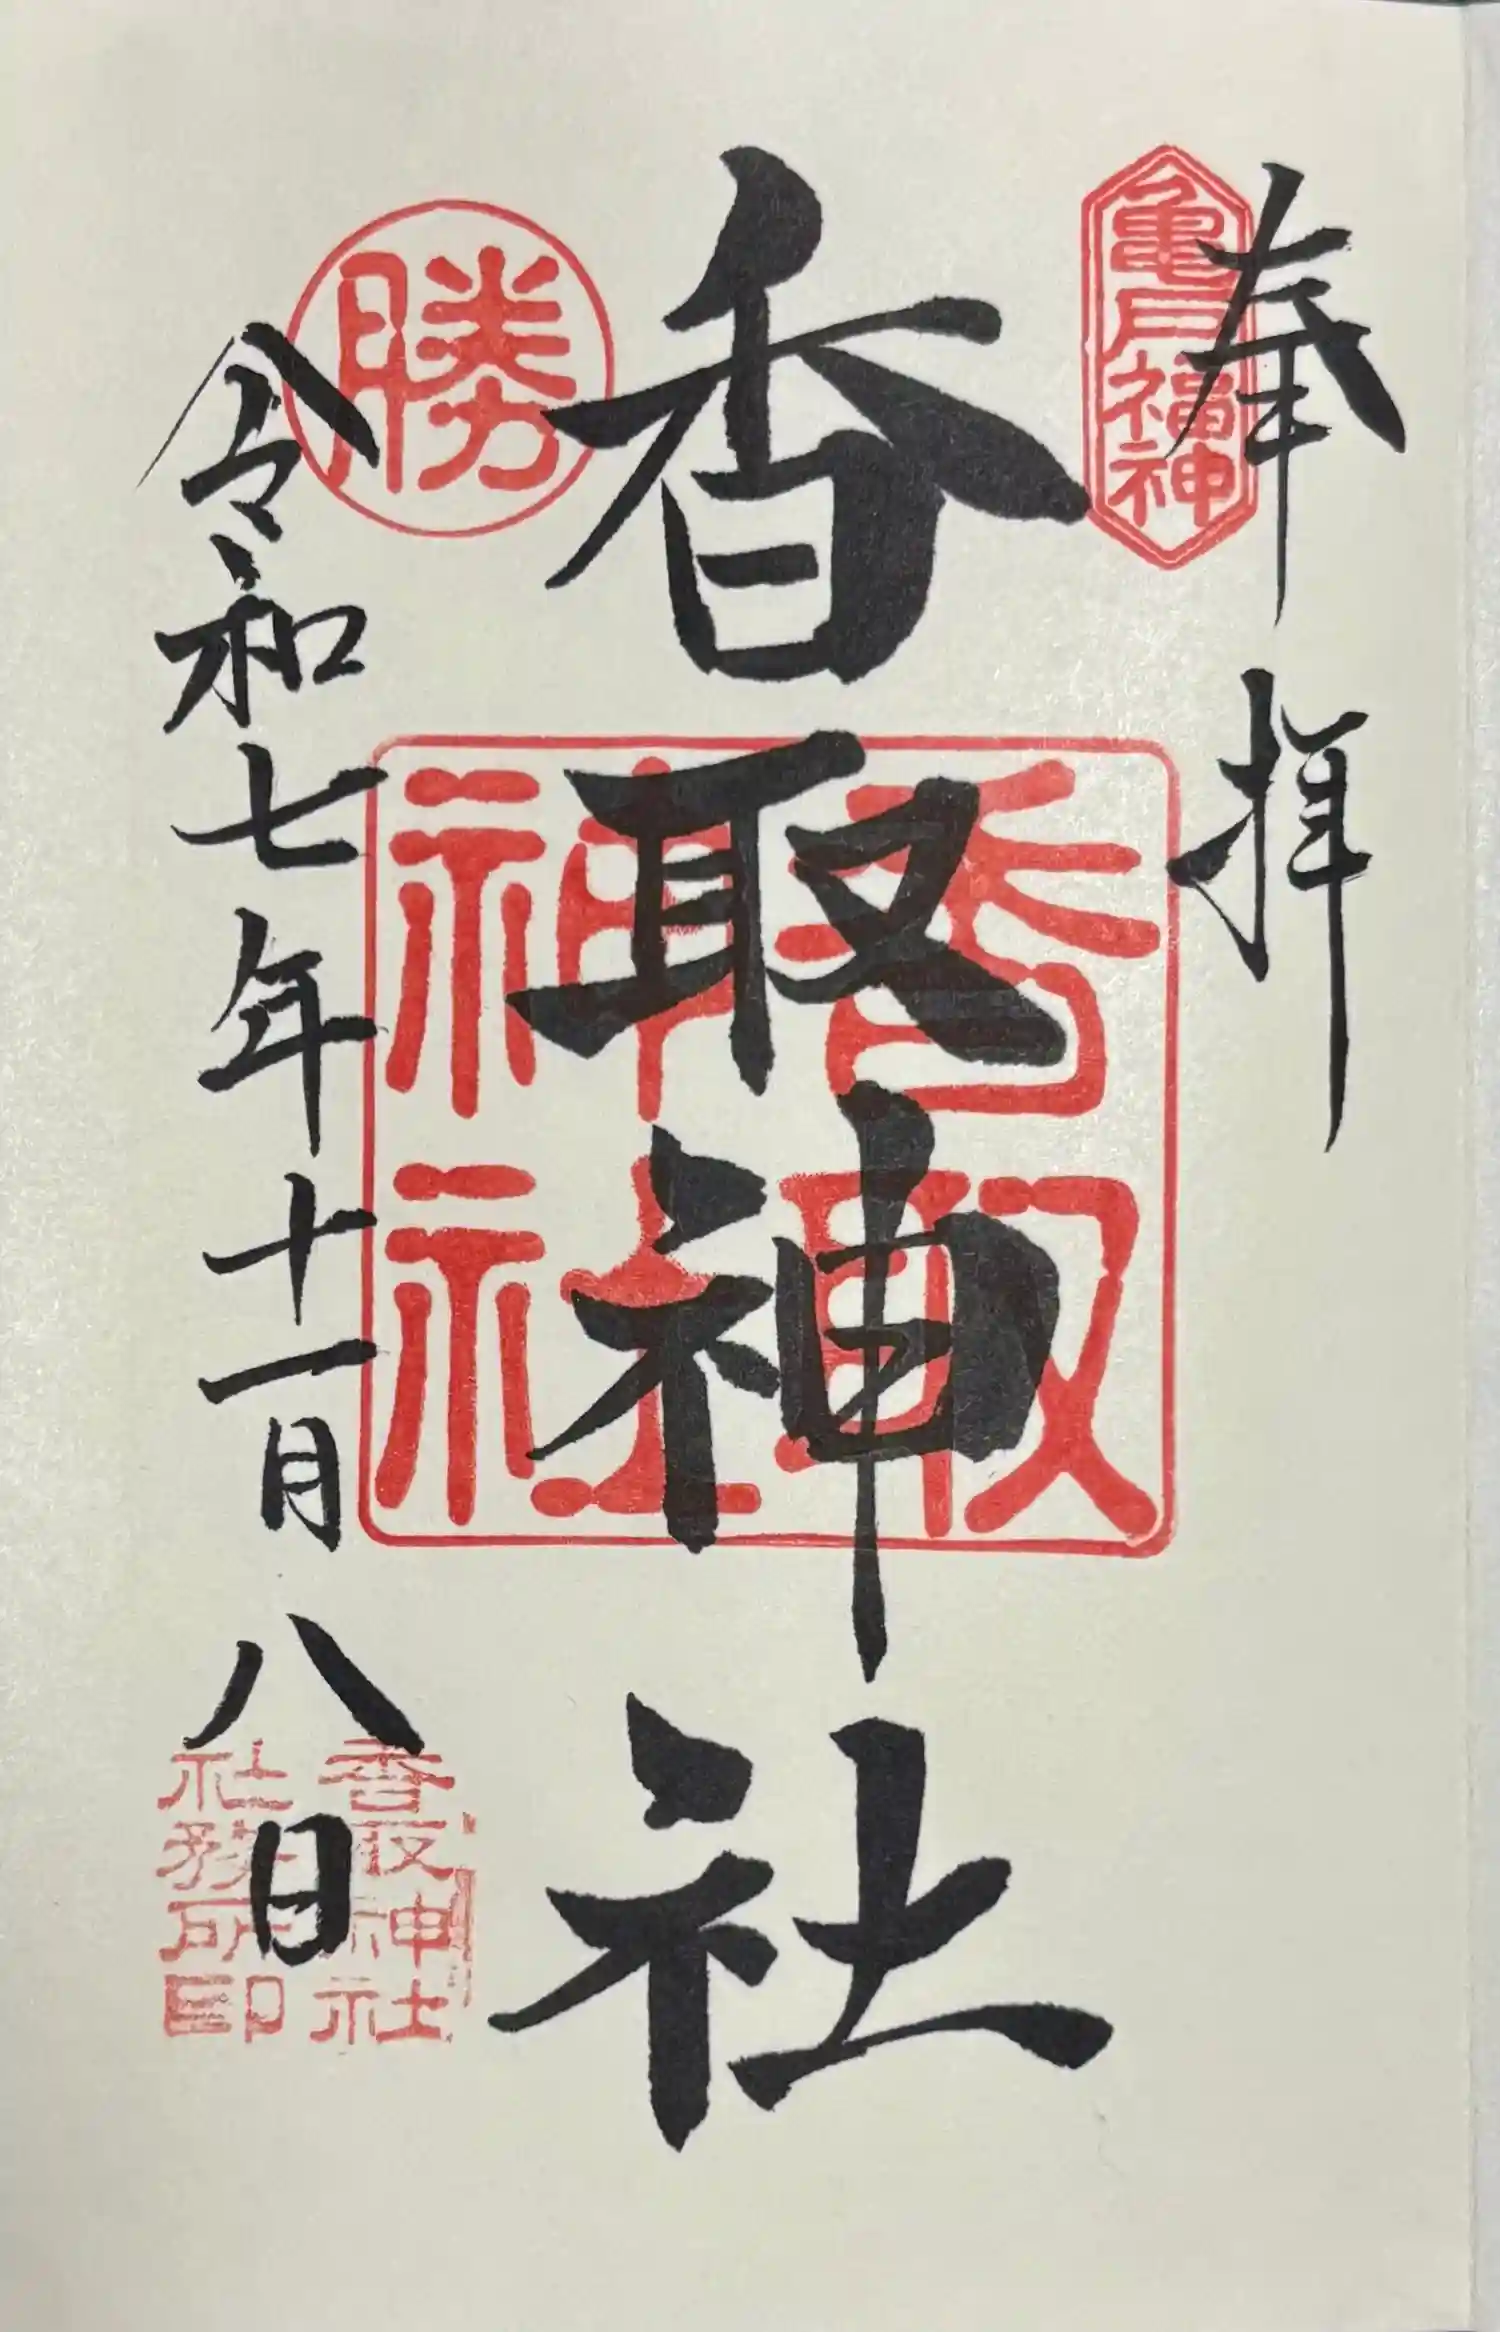 奉拝
亀戸福神
香取神社
香取
神社
勝
令和七年十一月八日
香取神社
社務所印